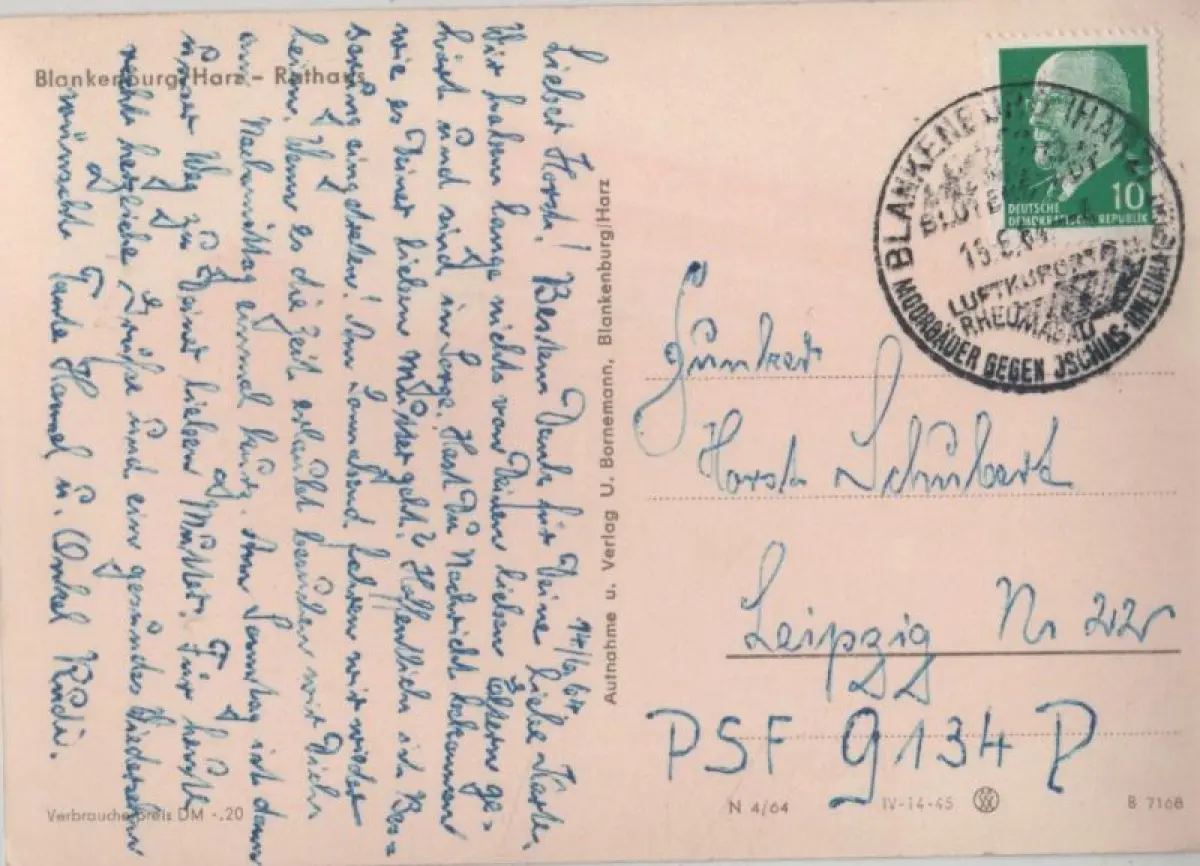 Blankenburg/Harz - Rathaus
14/6 64.
Lieber Horst! Besten Dank für Deine liebe Karte.
Wir haben lange nichts von Deinen lieben Eltern ge=
hört und sind in Sorge. Hast Du Nachricht bekommen
wie es Deiner lieben Mutter geht? Hoffentlich ist Bes=
serung eingetreten! Am Sonnabend fahren wir wieder
heim. Wenn es die Zeit erlaubt besuchen wir Dich
am Nachmittag einmal kurz. Am Sonntag ist dann
unser Weg zu Deiner lieben Mutter. Für heute
recht herzliche Grüße und ein gesundes Wiedersehn
wünscht Tante Hannel u. Onkel Rudi.
Verbraucherpreis DM -.20
Aufnahme u. Verlag U. Bornemann, Blankenburg/Harz
DEUTSCHE
DEMOKRATISCHE REPUBLIK
10
BLANKENBURG (HARZ)
LUFTKURORT
RHEUMABAD
MOORBÄDER GEGEN JSCHIAS-RHEUMA
Funker
Horst Schubert
Leipzig N 22
PSF 9134 D
N 4/64
IV-14-45
B 7168